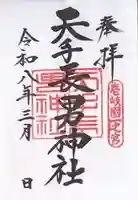 奉拝
壱岐國一之宮
天手長男神社
令和八年三月 日